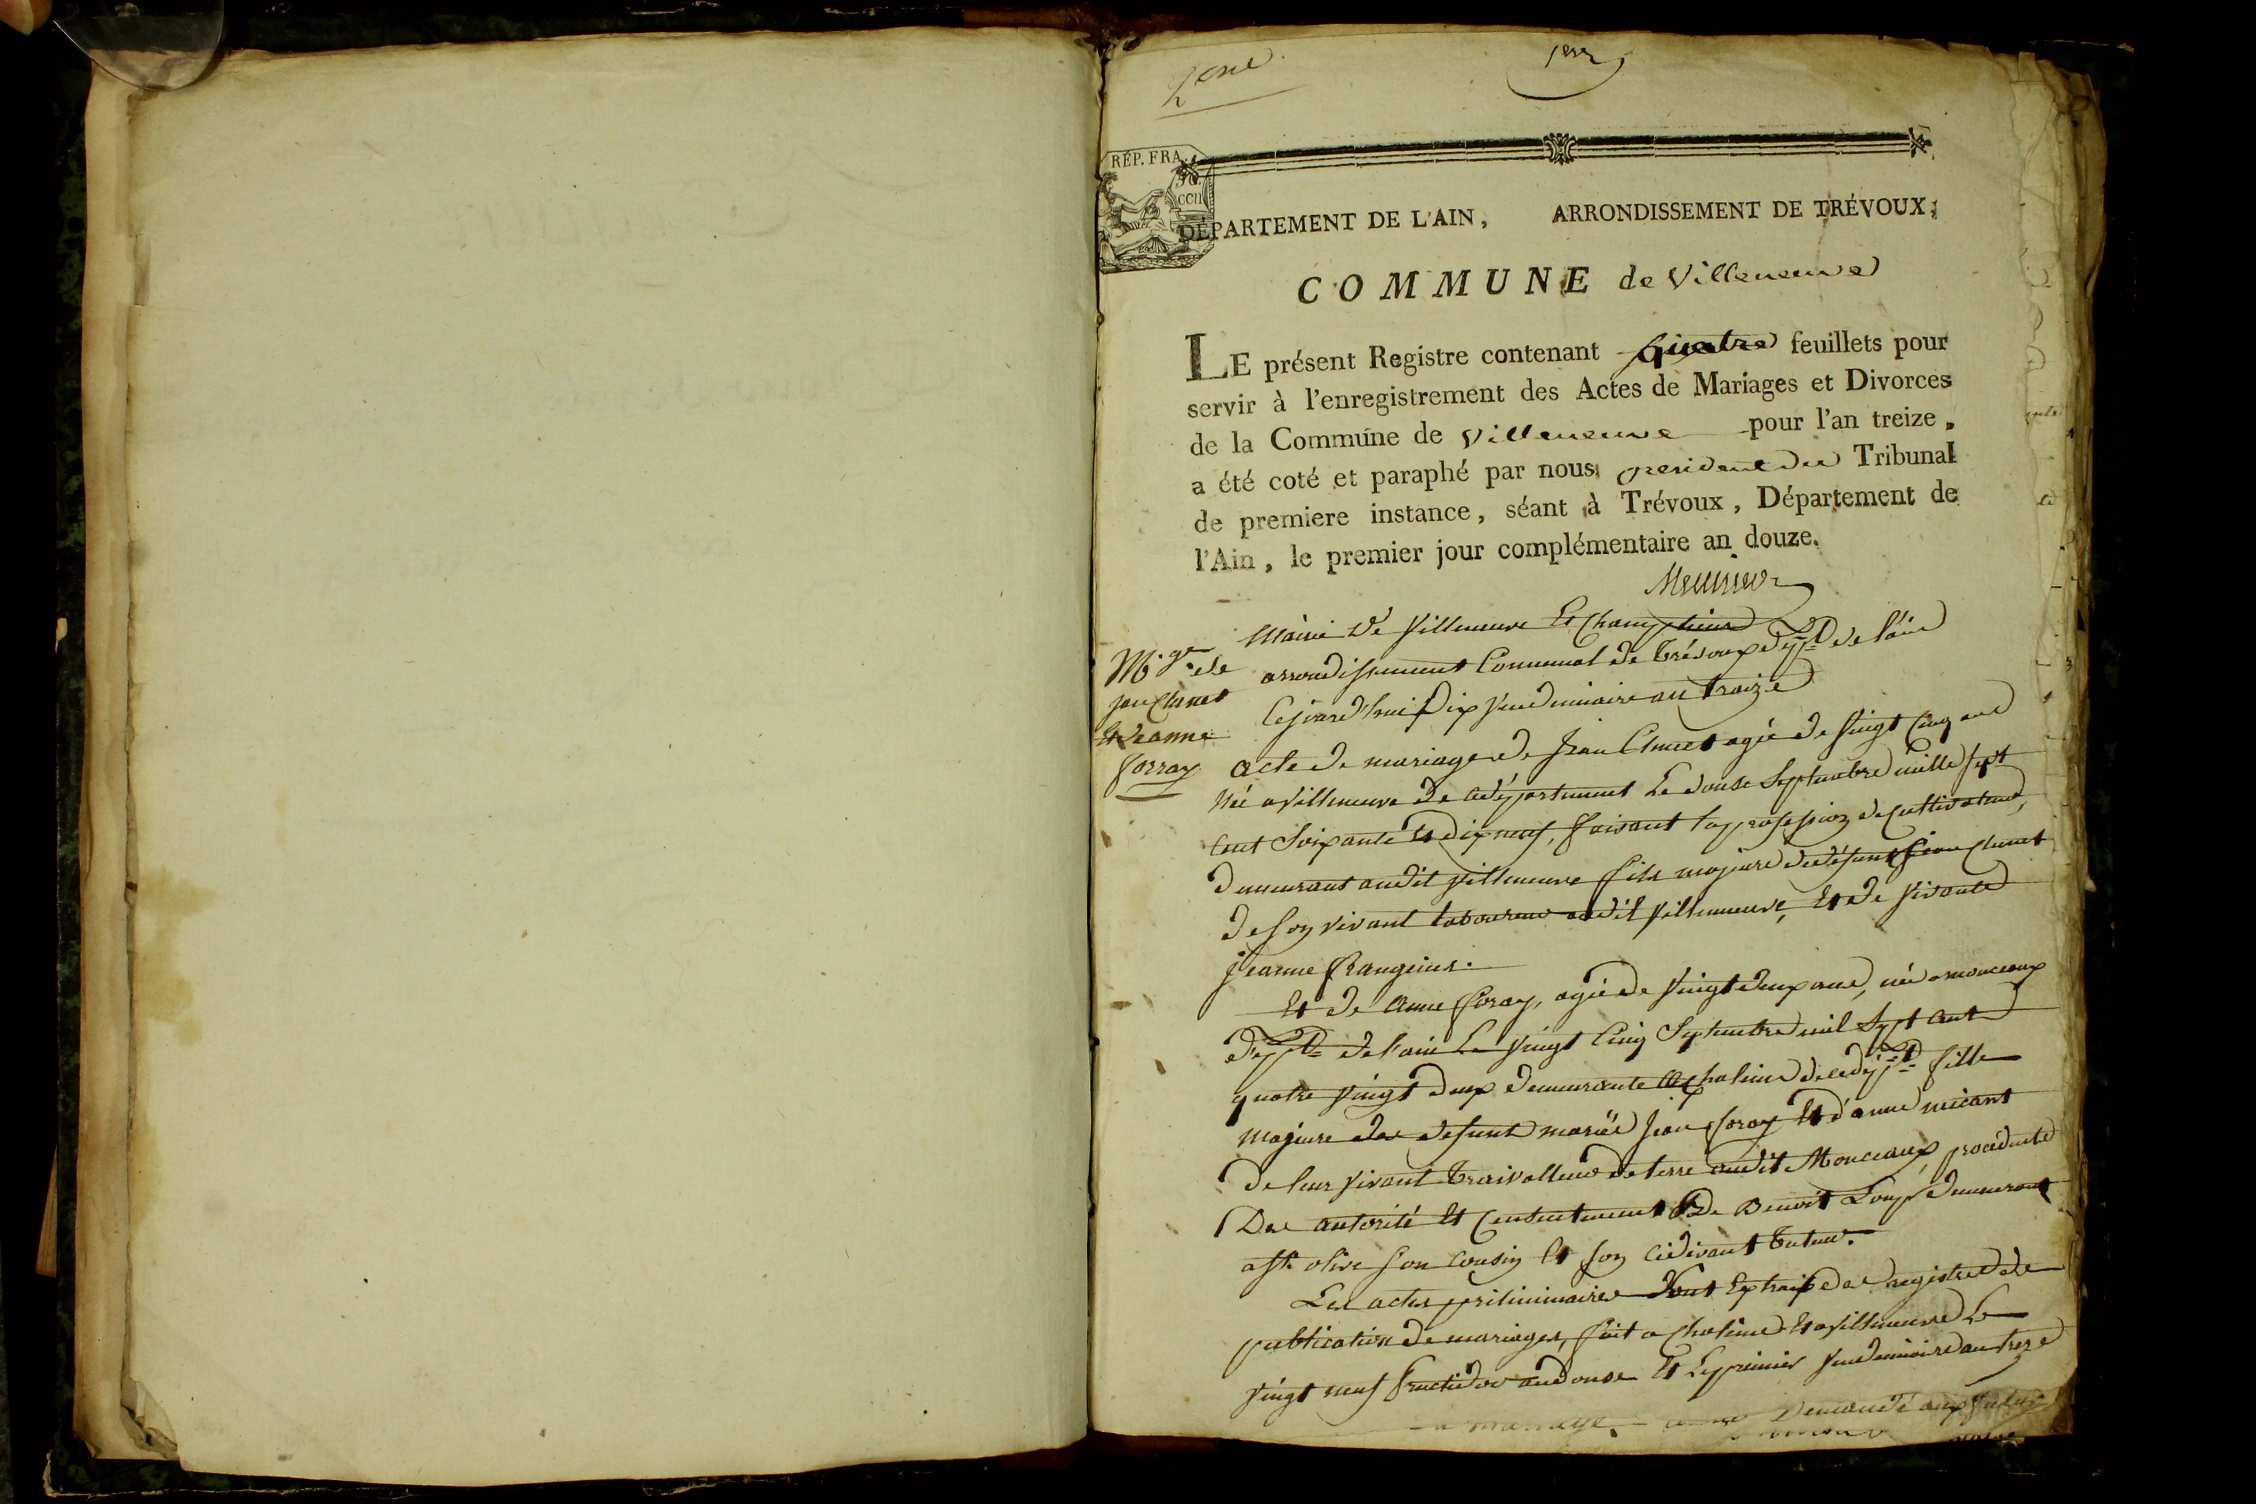 2eme
1er
RÉP. FRA.
DÉPARTEMENT DE L'AIN, ARRONDISSEMENT DE TRÉVOUX,
COMMUNE de Villeneuve
LE présent Registre contenant quatre feuillets pour
servir à l'enregistrement des Actes de Mariages et Divorces
de la Commune de villeneuve pour l'an treize,
a été coté et paraphé par nous president du Tribunal
de premiere instance, séant à Trévoux, Département de
l'Ain, le premier jour complémentaire an douze.
Mairie De Villeneuve Et Champteins
arrondissement Communal de Trévoux depт de l'ain
Cejourd'hui Dix Vendimiaire an treize
M.ge de
jean Clunet
Et Jeanne
forray
acte de mariage de Jean Clunet agé de Vingt Cinq ans
Né a Villeneuve de ce département Le douse Septembre mille Sept
Cent Soixante Et dix neuf, faisant la profession de Cultivateur,
demeurant audit Villeneuve fils majeur de défunt Jean Clunet
de son vivant laboureur audit Villeneuve, Et de Vivante
jeanne
Et de Anne foray, agée de Vingt deux ans, née a monceaux
dept de l'ain Le Vingt Cinq Septembre mil Sept Cent
quatre Vingt deux demeurante a Chaleins de ce dept fille
majeure des defunt mariés Jean foray Et d'anne micant
de leur Vivant Travailleur de terre audit Monceaux, procédante
De autorité Et Consentement De Benoit Loup demeurant
a Ste olive son Cousin Et son Cidevant Tuteur.
Les actes préliminaires Sont Extrait des registres de
publication de mariages, fait a Chaleins Et a Villeneuve Le
Vingt neuf fructidor an douse Et Le premier Vendimiaire an treze
mariage demandé aux futurs